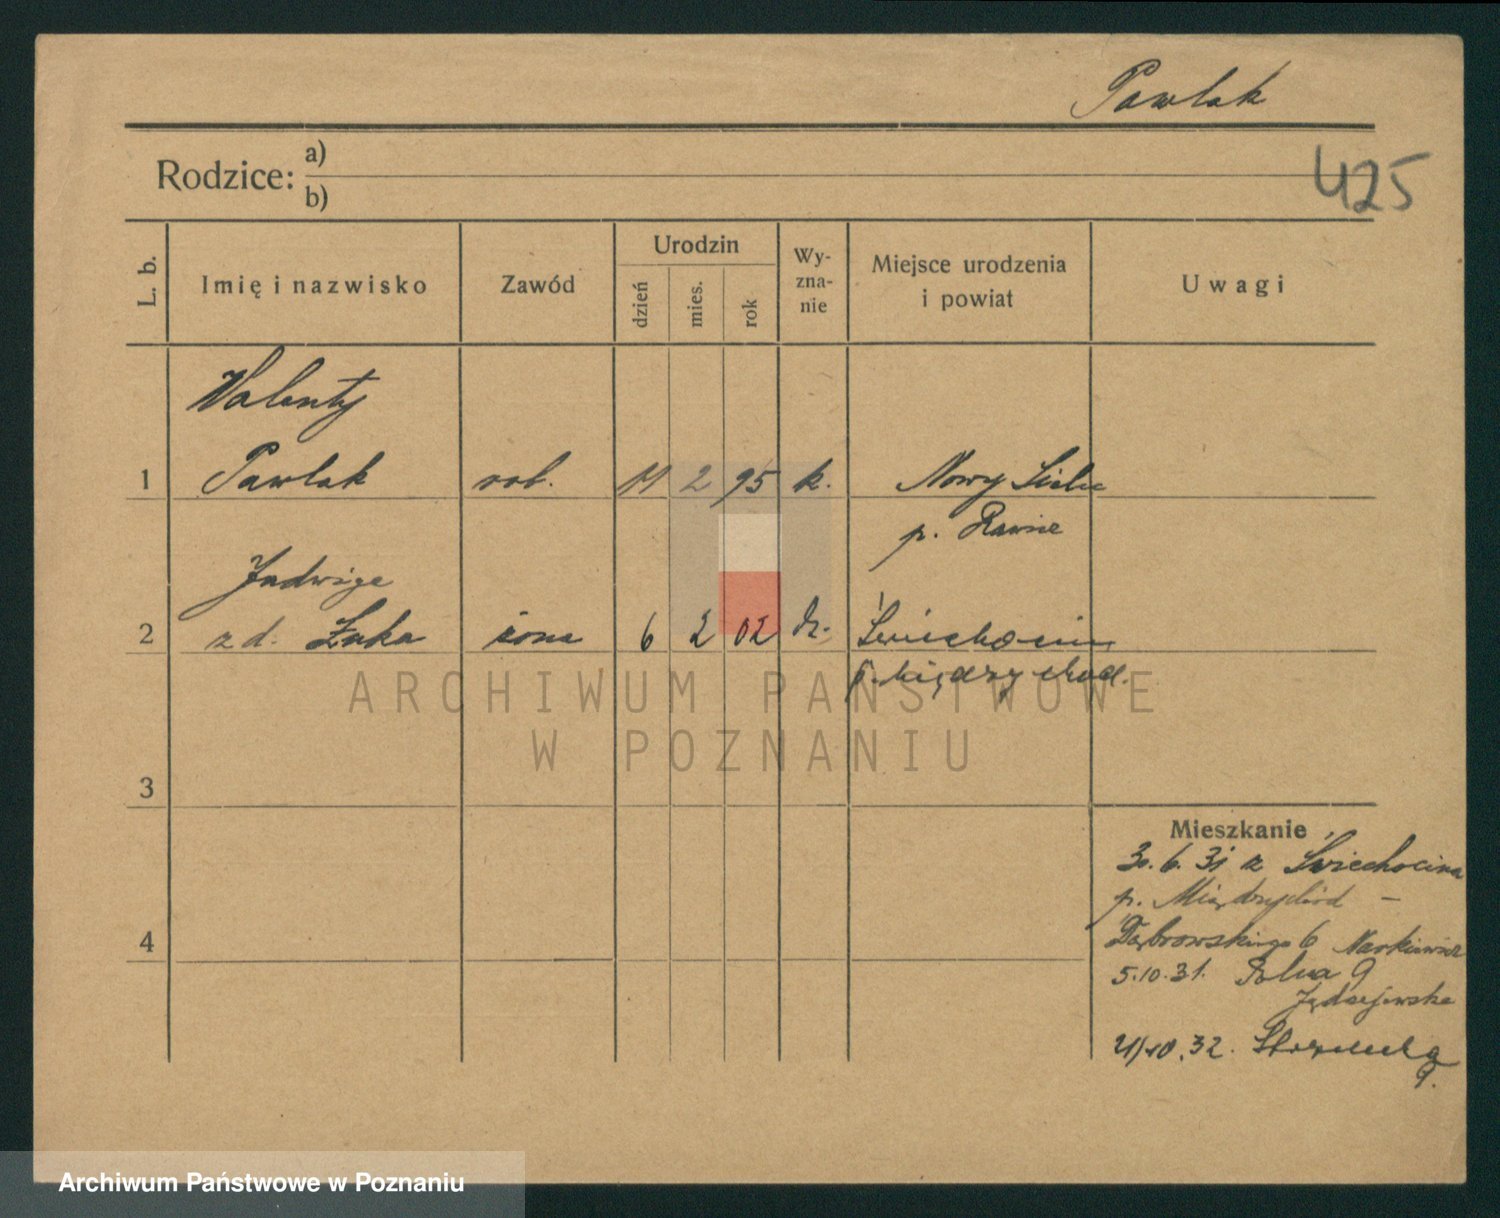 Pawlak
Rodzice: a)
b)
425
L. b.
Imię i nazwisko
Zawód
Urodzin
dzień
mies.
rok
Wy-
zna-
nie
Miejsce urodzenia
i powiat
Uwagi
Walenty
1 Pawlak rob. 11 2 95 k. Nowy
p. Rawicz
Jadwiga
2 z d. Żuka żona 6 2 02 k. Świechocin
p. Międzychod.
3
4
Mieszkanie
30.6.31 z Świechocina
p. Międzychód -
Dąbrowskiego 6 Markiewicz
5.10.31. Polna 9
Jędrzejewska
10.32.
9.
ARCHIWUM PAŃSTWOWE
W POZNANIU
Archiwum Państwowe w Poznaniu